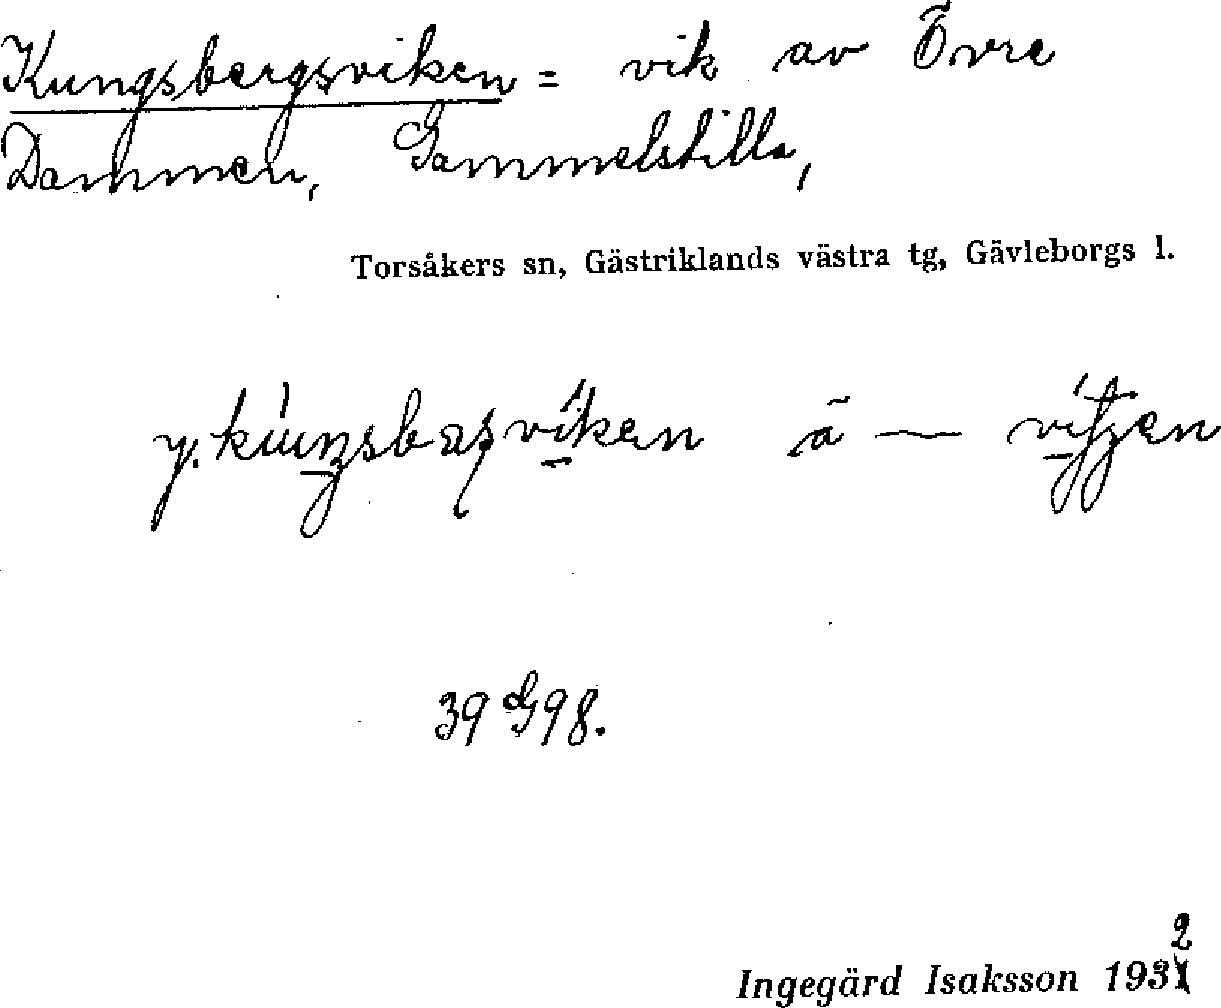 Kungsbergsviken = vik av Övre
Dammen, Gammelstilla,
Torsåkers sn, Gästriklands västra tg, Gävleborgs l.
39 G 98.
2
Ingegärd Isaksson 1931